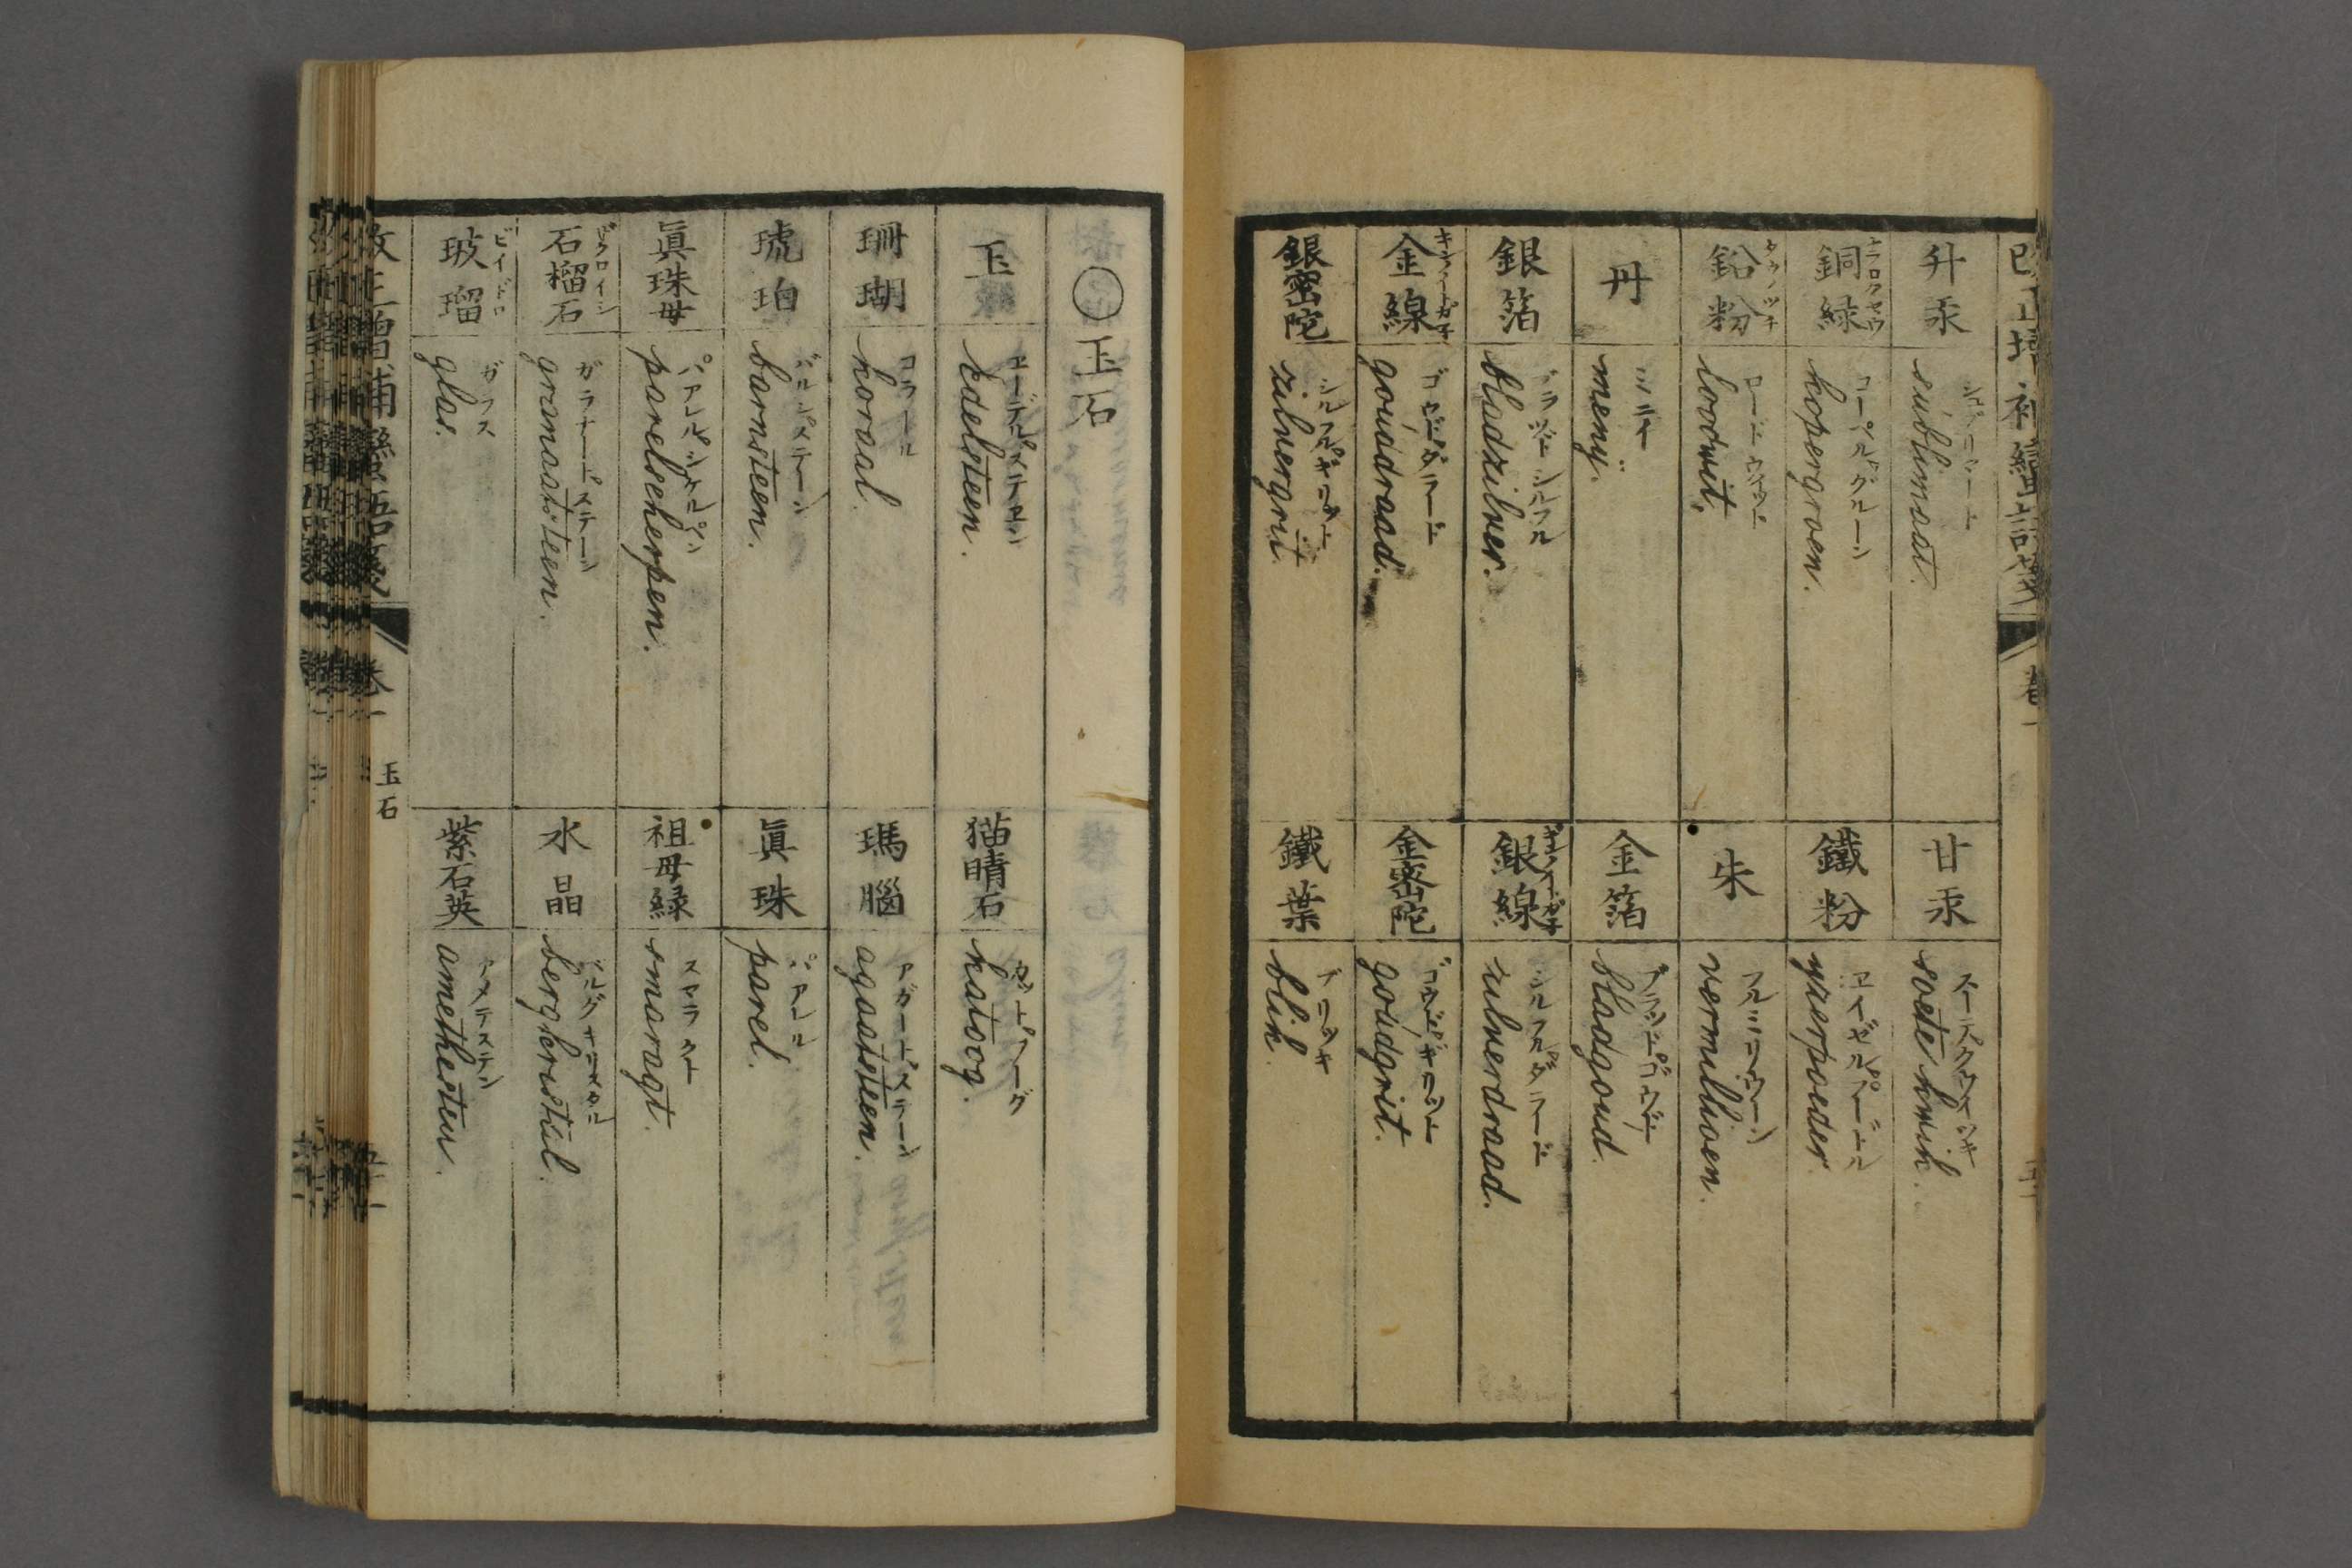 改正増補蠻語箋
卷一
升汞
sublimaat.
甘汞
スーテクウイツキ
soete kwik.
銅緑
コーペルグルーン
kopergroen.
鐵粉
ヱイゼルプードル
yzerpoeder.
鉛粉
ロードウイツト
loodwit.
朱
フルミリウーン
vermilluoen.
丹
ミニー
meny.
金箔
ブラツドゴウド
bladgoud.
銀箔
ブラツドシルフル
bladzilver.
銀線
シルフルダラード
zulverdraad.
金線
ゴウドダラード
goudraad.
金密陀
ゴウドギリツト
goudgrit.
銀密陀
シルフルギリツト
zilvergrit.
鐵葉
ブリツキ
blik.
○玉石
玉
ヱーデルステヱン
edelsteen.
猫睛石
カツトヲーグ
katoog.
珊瑚
コラール
koraal.
瑪腦
アガートステーン
agaatsteen.
琥珀
バルンステーン
barnsteen.
眞珠
パアレル
parel.
眞珠母
パアレルシケルペン
parelscherpen.
祖母緑
スマラクト
smaragt.
石榴石
ガラナートステーン
granaatsteen.
水晶
ベルグキリスタル
bergkristal.
玻瓈
ビイドロ
ガラス
glas.
紫石英
アメテステン
amethesten.
改正増補蠻語箋
卷一
玉石